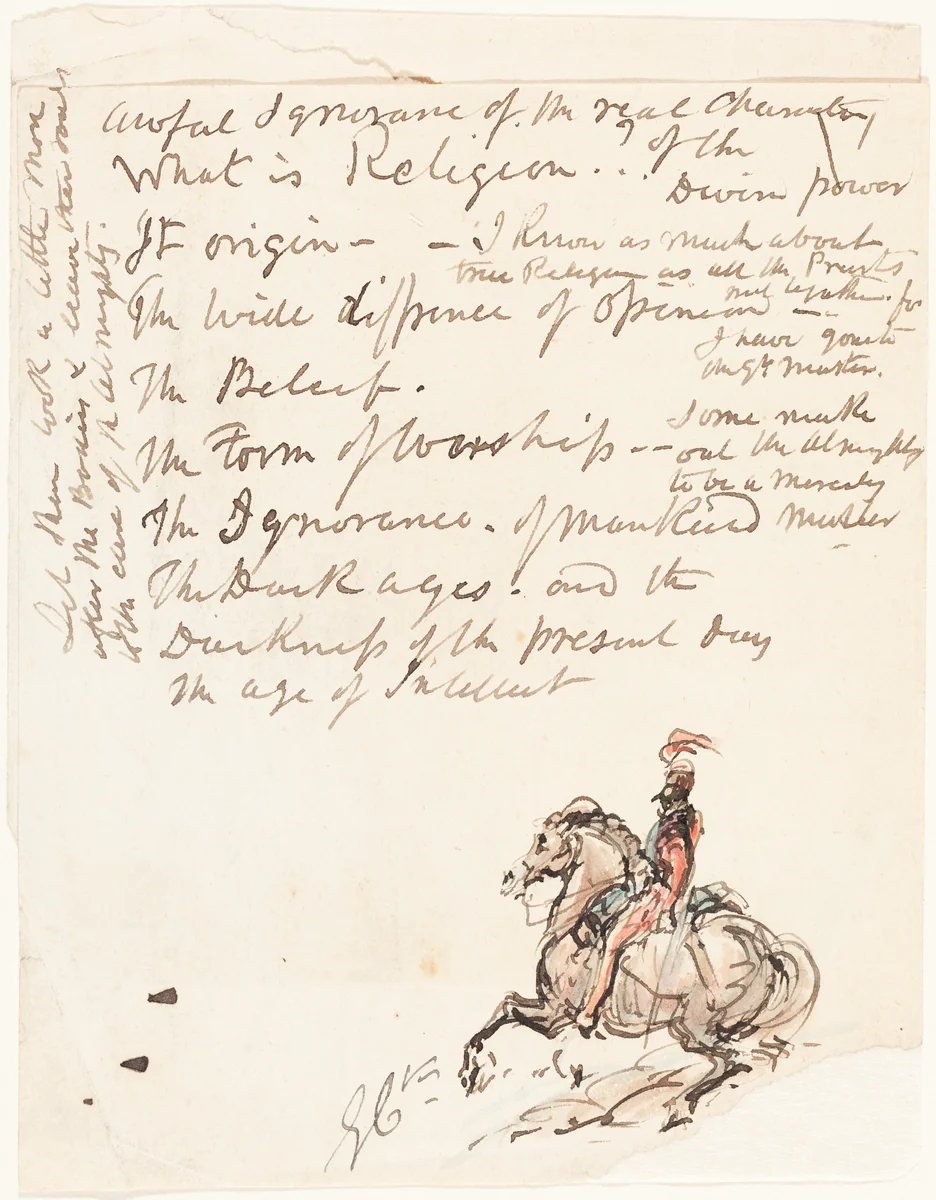 awful Ignorance of the real Character,
of the
Divine power
What is Religion . . ?
It origin – – I know as much about
true Religion as all the Priests
put together. for
I have gone to
the Gt Master.
The wide diffrence of Opinion –
The Beleif.
The Form of Worship – – Some make
out the Almighty
to be a Merciless
Master
The Ignorance. of Mankind
The Dark ages. and the
Darkness of the present day
The age of Intellect
Let them look a little more
after the Bodies & leave their souls
to the care of the Almighty.